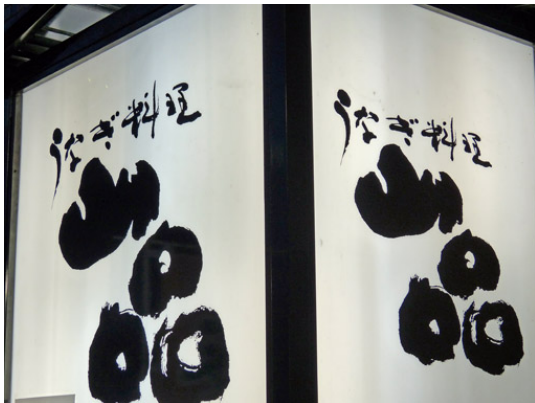 うなぎ料理
山品
うなぎ料理
山品